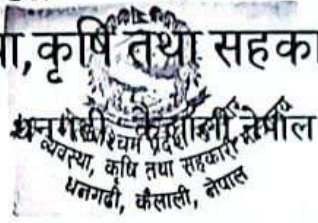 ा,कृषि तथा सहका
धनगढी, कैलाली, नेपाल
व्यवस्था, कृषि तथा सहकारी
धनगढी, कैलाली, नेपाल